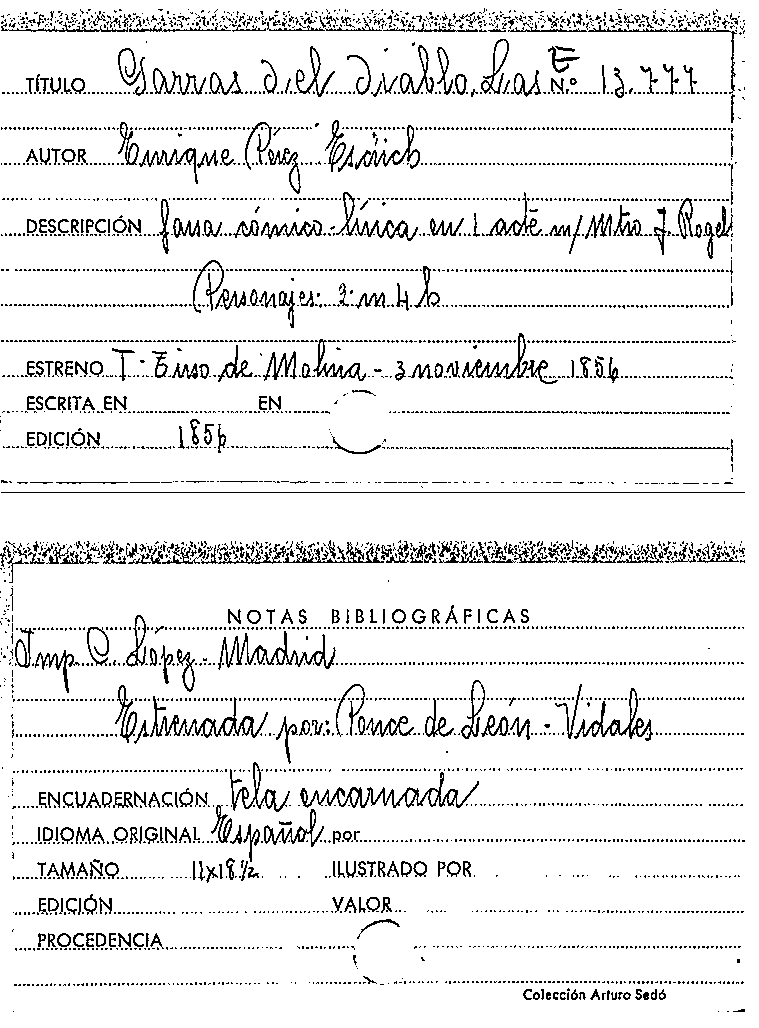 TÍTULO Garras del diablo, Las E N.º 13.777
AUTOR Enrique Pérez Escrich
DESCRIPCIÓN farsa cómico-lírica en 1 acte m/ Mtro J. Rogel
Personajes: 2 m 4 h
ESTRENO T. Tirso de Molina - 3 noviembre 1856
ESCRITA EN EN
EDICIÓN 1856
NOTAS BIBLIOGRÁFICAS
Imp. C. López - Madrid
Estrenada por: Ponce de León - Vidales
ENCUADERNACIÓN tela encarnada
IDIOMA ORIGINAL Español por
TAMAÑO 11x18 ½ ILUSTRADO POR
EDICIÓN VALOR
PROCEDENCIA
Colección Arturo Sedó